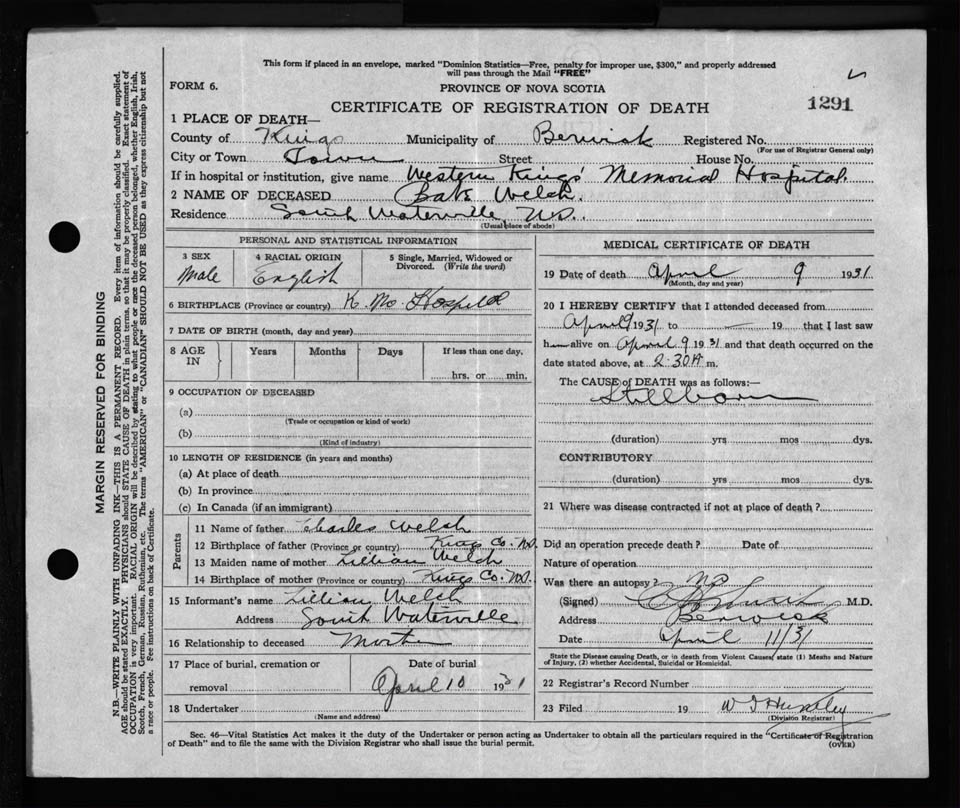 This form if placed in an envelope, marked "Dominion Statistics—Free, penalty for improper use, $300," and properly addressed
will pass through the Mail "FREE"
FORM 6.
PROVINCE OF NOVA SCOTIA
CERTIFICATE OF REGISTRATION OF DEATH
1291
1 PLACE OF DEATH—
County of Kings Municipality of Berwick Registered No.
(For use of Registrar General only)
City or Town Town Street House No.
If in hospital or institution, give name Western Kings' Memorial Hospital
2 NAME OF DECEASED Baby Welch
Residence South Waterville, N.S.
(Usual place of abode)
PERSONAL AND STATISTICAL INFORMATION
3 SEX
Male
4 RACIAL ORIGIN
English
5 Single, Married, Widowed or
Divorced. (Write the word)
6 BIRTHPLACE (Province or country) Hospital
7 DATE OF BIRTH (month, day and year)
8 AGE
IN
Years Months Days If less than one day,
hrs. or min.
9 OCCUPATION OF DECEASED
(a)
(Trade or occupation or kind of work)
(b)
(Kind of industry)
10 LENGTH OF RESIDENCE (in years and months)
(a) At place of death
(b) In province
(c) In Canada (if an immigrant)
Parents
11 Name of father Charles Welch
12 Birthplace of father (Province or country) Kings Co. N.S.
13 Maiden name of mother Lillian Welch
14 Birthplace of mother (Province or country) Kings Co. N.S.
15 Informant's name Lillian Welch
Address South Waterville
16 Relationship to deceased Mother
17 Place of burial, cremation or
removal
Date of burial
April 10 1931
18 Undertaker
(Name and address)
MEDICAL CERTIFICATE OF DEATH
19 Date of death April 9 1931
(Month, day and year)
20 I HEREBY CERTIFY that I attended deceased from
April 9 1931 to — 19 that I last saw
h alive on April 9 1931 and that death occurred on the
date stated above, at 2.30 A m.
The CAUSE of DEATH was as follows:—
Stillborn
(duration) yrs mos dys.
CONTRIBUTORY
(duration) yrs mos dys.
21 Where was disease contracted if not at place of death?
Did an operation precede death? Date of
Nature of operation
Was there an autopsy? no
(Signed) M.D.
Address Berwick
Date April 11/31
State the Disease causing Death, or in death from Violent Causes, state (1) Means and Nature
of Injury, (2) whether Accidental, Suicidal or Homicidal.
22 Registrar's Record Number
23 Filed 19 Huntley
(Division Registrar)
Sec. 46—Vital Statistics Act makes it the duty of the Undertaker or person acting as Undertaker to obtain all the particulars required in the "Certificate of Registration
of Death" and to file the same with the Division Registrar who shall issue the burial permit.
(OVER)
MARGIN RESERVED FOR BINDING
N.B.—WRITE PLAINLY WITH UNFADING INK—THIS IS A PERMANENT RECORD. Every item of information should be carefully supplied.
AGE should be stated EXACTLY. PHYSICIANS should STATE CAUSE OF DEATH in plain terms, so that it may be properly classified. Exact statement of
OCCUPATION is very important. RACIAL ORIGIN will be described by stating to what people or race the deceased person belonged, whether English, Irish,
Scotch, French, German, Russian, Ruthenian, etc. The terms "AMERICAN" or "CANADIAN" SHOULD NOT BE USED as they express citizenship but not
a race or people. See instructions on back of Certificate.